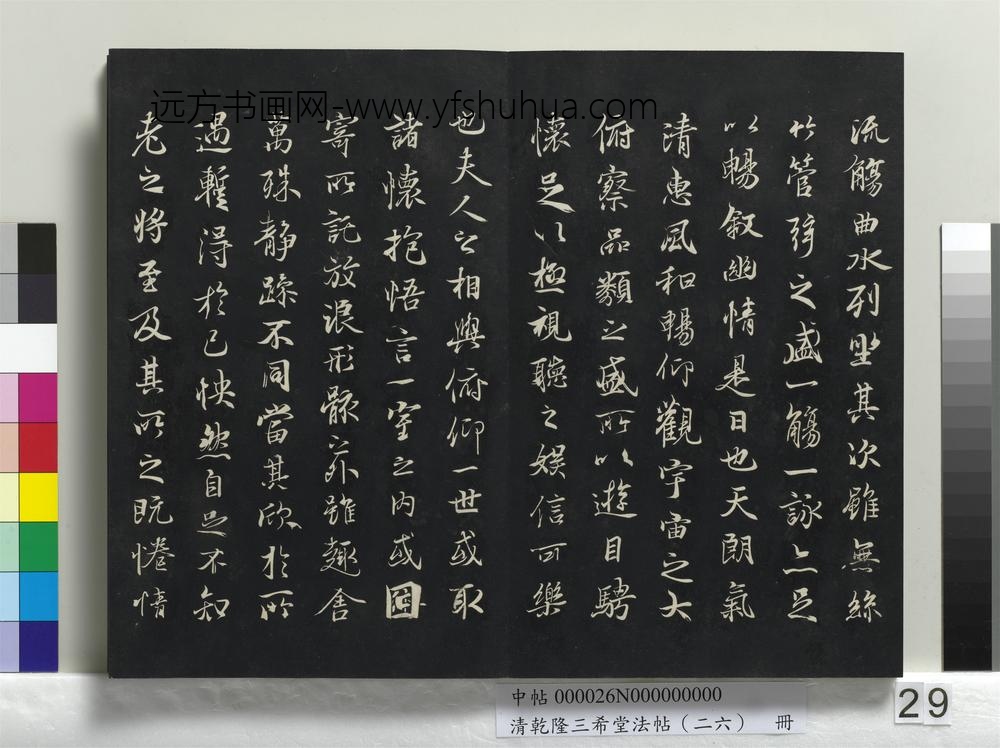 远方书画网-www.yfshuhua.com
流觴曲水列坐其次雖無絲
竹管弦之盛一觴一詠亦足
以暢叙幽情是日也天朗氣
清惠風和暢仰觀宇宙之大
俯察品類之盛所以遊目騁
懷足以極視聽之娛信可樂
也夫人之相與俯仰一世或取
諸懷抱悟言一室之內或因
寄所託放浪形骸之外雖趣舍
萬殊静躁不同當其欣於所
遇蹔得於己怏然自足不知
老之將至及其所之既惓情
中帖 000026N000000000
清乾隆三希堂法帖（二六） 冊
29